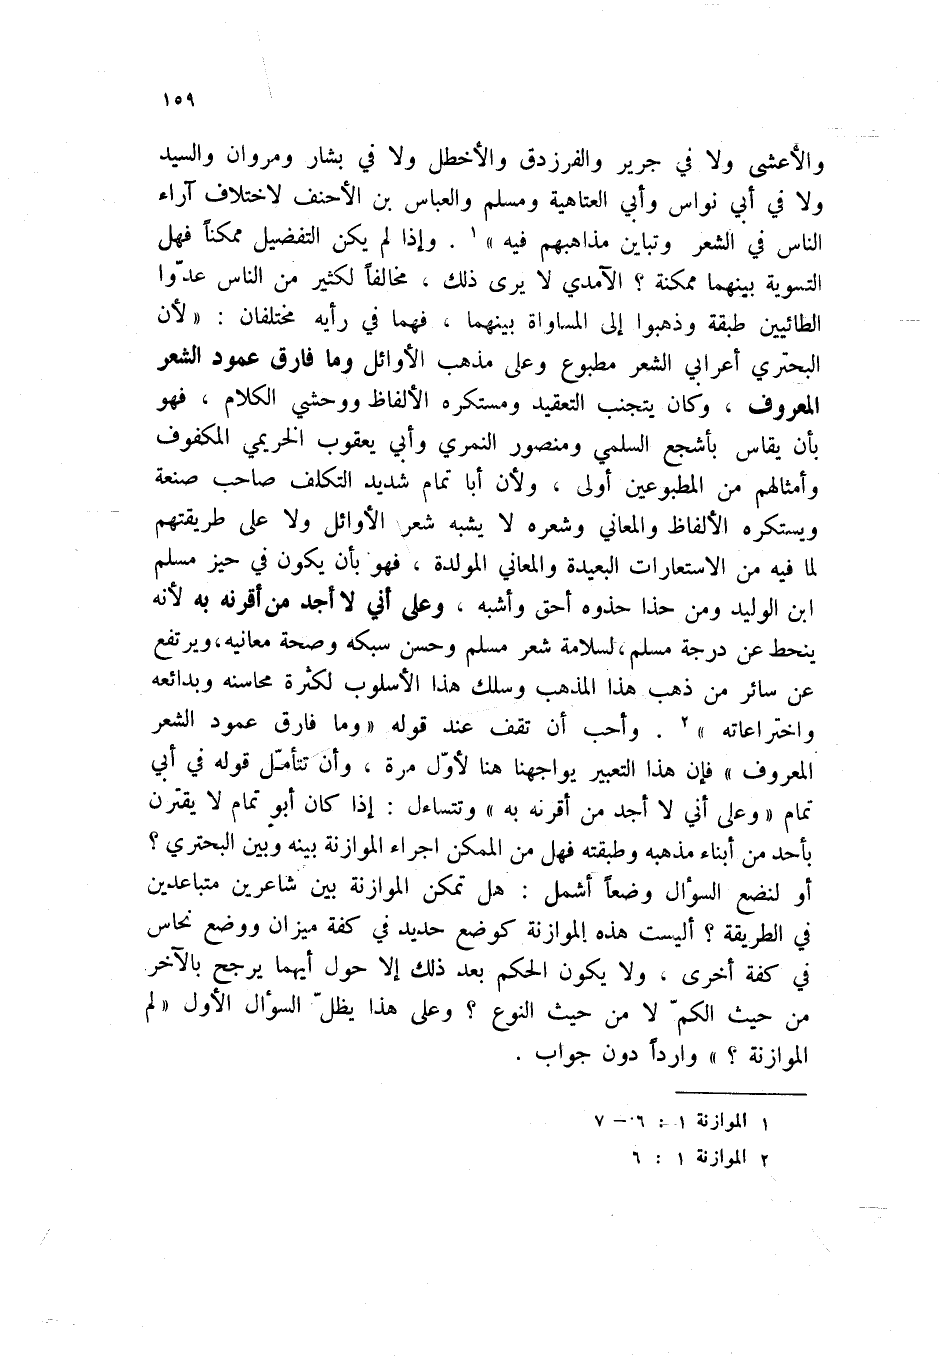 ١٥٩
والأعشى ولا في جرير والفرزدق والأخطل ولا في بشار ومروان والسيد
ولا في أبي نواس وأبي العتاهية ومسلم والعباس بن الأحنف لاختلاف آراء
الناس في الشعر وتباين مذاهبهم فيه » ١ . وإذا لم يكن التفضيل ممكناً فهل
التسوية بينهما ممكنة ؟ الآمدي لا يرى ذلك ، مخالفاً لكثير من الناس عدّوا
الطائيين طبقة وذهبوا إلى المساواة بينهما ، فهما في رأيه مختلفان : « لأن
البحتري أعرابي الشعر مطبوع وعلى مذهب الأوائل وما فارق عمود الشعر
المعروف ، وكان يتجنب التعقيد ومستكره الألفاظ ووحشي الكلام ، فهو
بأن يقاس بأشجع السلمي ومنصور النمري وأبي يعقوب الخريمي المكفوف
وأمثالهم من المطبوعين أولى ، ولأن أبا تمام شديد التكلف صاحب صنعة
ويستكره الألفاظ والمعاني وشعره لا يشبه شعر الأوائل ولا على طريقتهم
لما فيه من الاستعارات البعيدة والمعاني المولدة ، فهو بأن يكون في حيز مسلم
ابن الوليد ومن حذا حذوه أحق وأشبه ، وعلى أني لا أجد من أقرنه به لأنه
ينحط عن درجة مسلم، لسلامة شعر مسلم وحسن سبكه وصحة معانيه، ويرتفع
عن سائر من ذهب هذا المذهب وسلك هذا الأسلوب لكثرة محاسنه وبدائعه
واختراعاته » ٢ . وأحب أن تقف عند قوله « وما فارق عمود الشعر
المعروف » فإن هذا التعبير يواجهنا هنا لأوّل مرة ، وأن تتأمّل قوله في أبي
تمام « وعلى أني لا أجد من أقرنه به » وتتساءل : إذا كان أبو تمام لا يقترن
بأحد من أبناء مذهبه وطبقته فهل من الممكن اجراء الموازنة بينه وبين البحتري ؟
أو لنضع السؤال وضعاً أشمل : هل تمكن الموازنة بين شاعرين متباعدين
في الطريقة ؟ أليست هذه الموازنة كوضع حديد في كفة ميزان ووضع نحاس
في كفة أخرى ، ولا يكون الحكم بعد ذلك إلا حول أيهما يرجح بالآخر
من حيث الكمّ لا من حيث النوع ؟ وعلى هذا يظلّ السؤال الأول « لم
الموازنة ؟ » وارداً دون جواب .
١ الموازنة ١ : ٦ – ٧
٢ الموازنة ١ : ٦